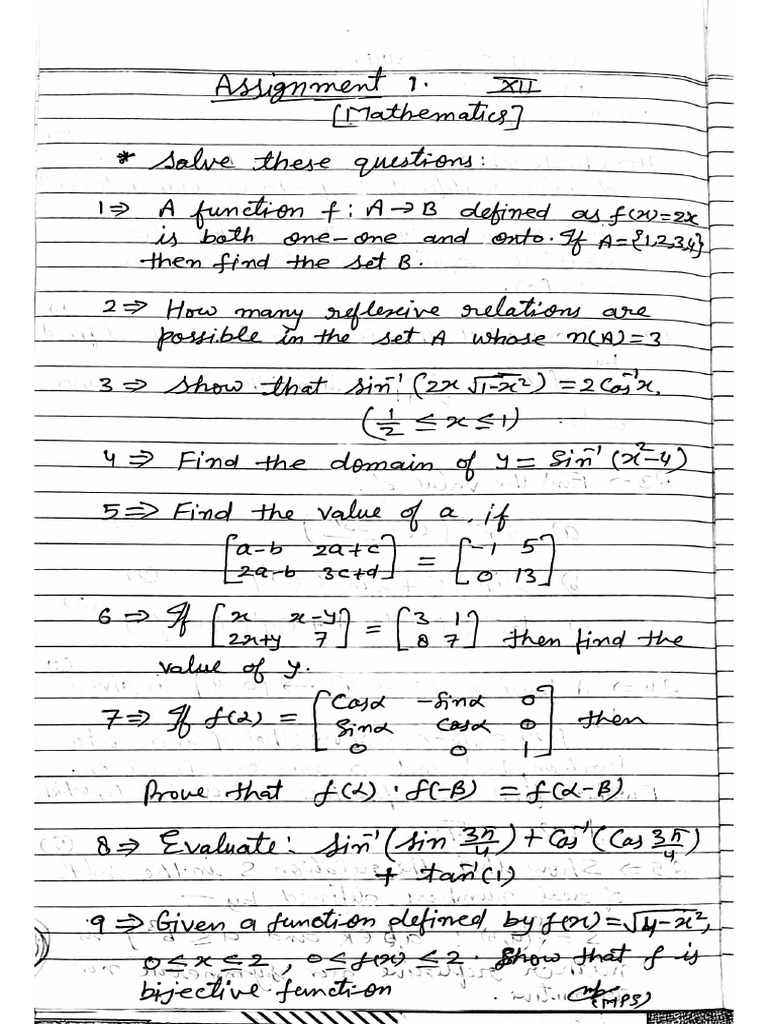 Assignment 1. XII
[Mathematics]
* Solve these questions:
1⇒ A function f: A→B defined as f(x)=2x
is both one-one and onto. If A={1,2,3,4}
then find the set B.
2⇒ How many reflexive relations are
possible in the set A whose n(A)=3
3⇒ Show that sin⁻¹(2x√1-x²) = 2Cos⁻¹x,
(1/2 ≤ x ≤ 1)
4⇒ Find the domain of y = Sin⁻¹(x²-4)
5⇒ Find the value of a, if
[a-b 2a+c] = [-1 5]
[2a-b 3c+d] [0 13]
6⇒ If [x x-y] = [3 1]
[2x+y 7] [8 7] then find the
value of y.
7⇒ If f(α) = [Cosα -Sinα 0]
[Sinα Cosα 0] then
[0 0 1]
Prove that f(α) · f(-β) = f(α-β)
8⇒ Evaluate: Sin⁻¹(Sin 3π/4) + Cos⁻¹(Cos 3π/4)
+ tan⁻¹(1)
9⇒ Given a function defined by f(x)=√4-x²,
0≤x≤2, 0≤f(x)≤2. Show that f is
bijective function
(MPS)